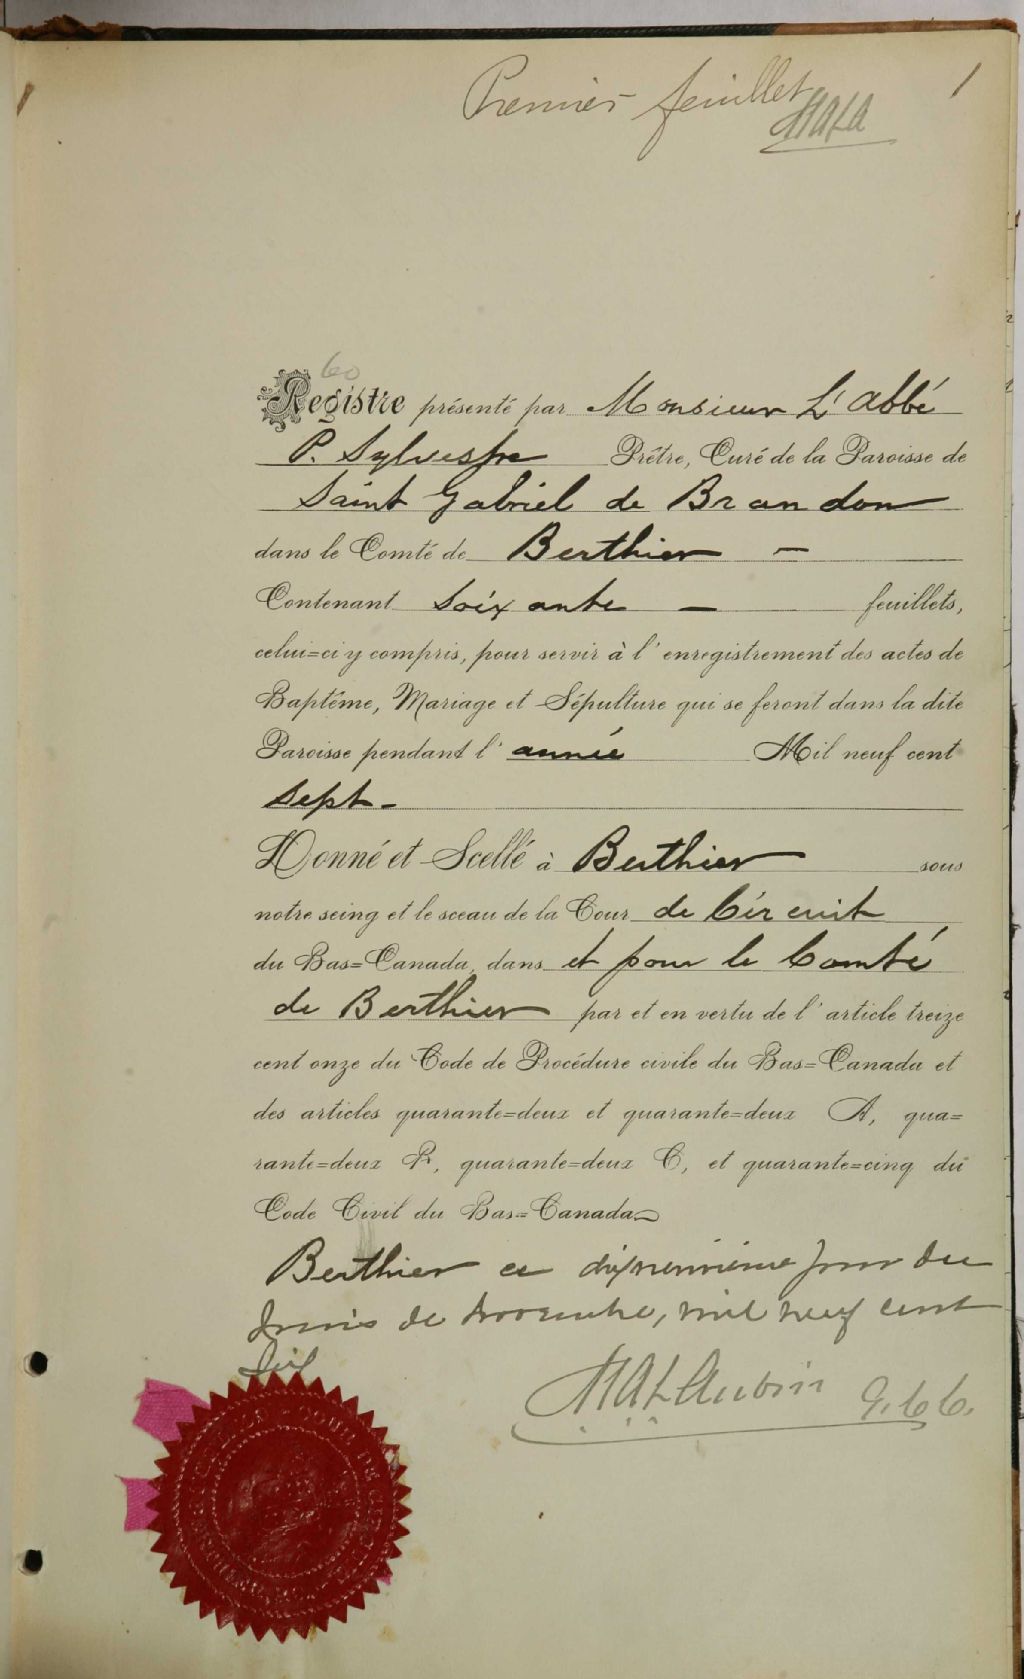 Premier feuillet
1
60
Registre présenté par Monsieur L'abbé
P. Sylvestre Prêtre, Curé de la Paroisse de
Saint Gabriel de Brandon
dans le Comté de Berthier —
Contenant Soixante — feuillets,
celui=ci y compris, pour servir à l'enregistrement des actes de
Baptême, Mariage et Sépulture qui se feront dans la dite
Paroisse pendant l'année Mil neuf cent
Sept -
Donné et Scellé à Berthier sous
notre seing et le sceau de la Cour de Circuit
du Bas=Canada, dans et pour le Comté
de Berthier par et en vertu de l'article treize
cent onze du Code de Procédure civile du Bas=Canada et
des articles quarante=deux et quarante=deux A, qua=
rante=deux B, quarante=deux C, et quarante=cinq du
Code Civil du Bas=Canada
Berthier ce dixneuvième jour du
mois de novembre, mil neuf cent
six
Aubin G.C.C.